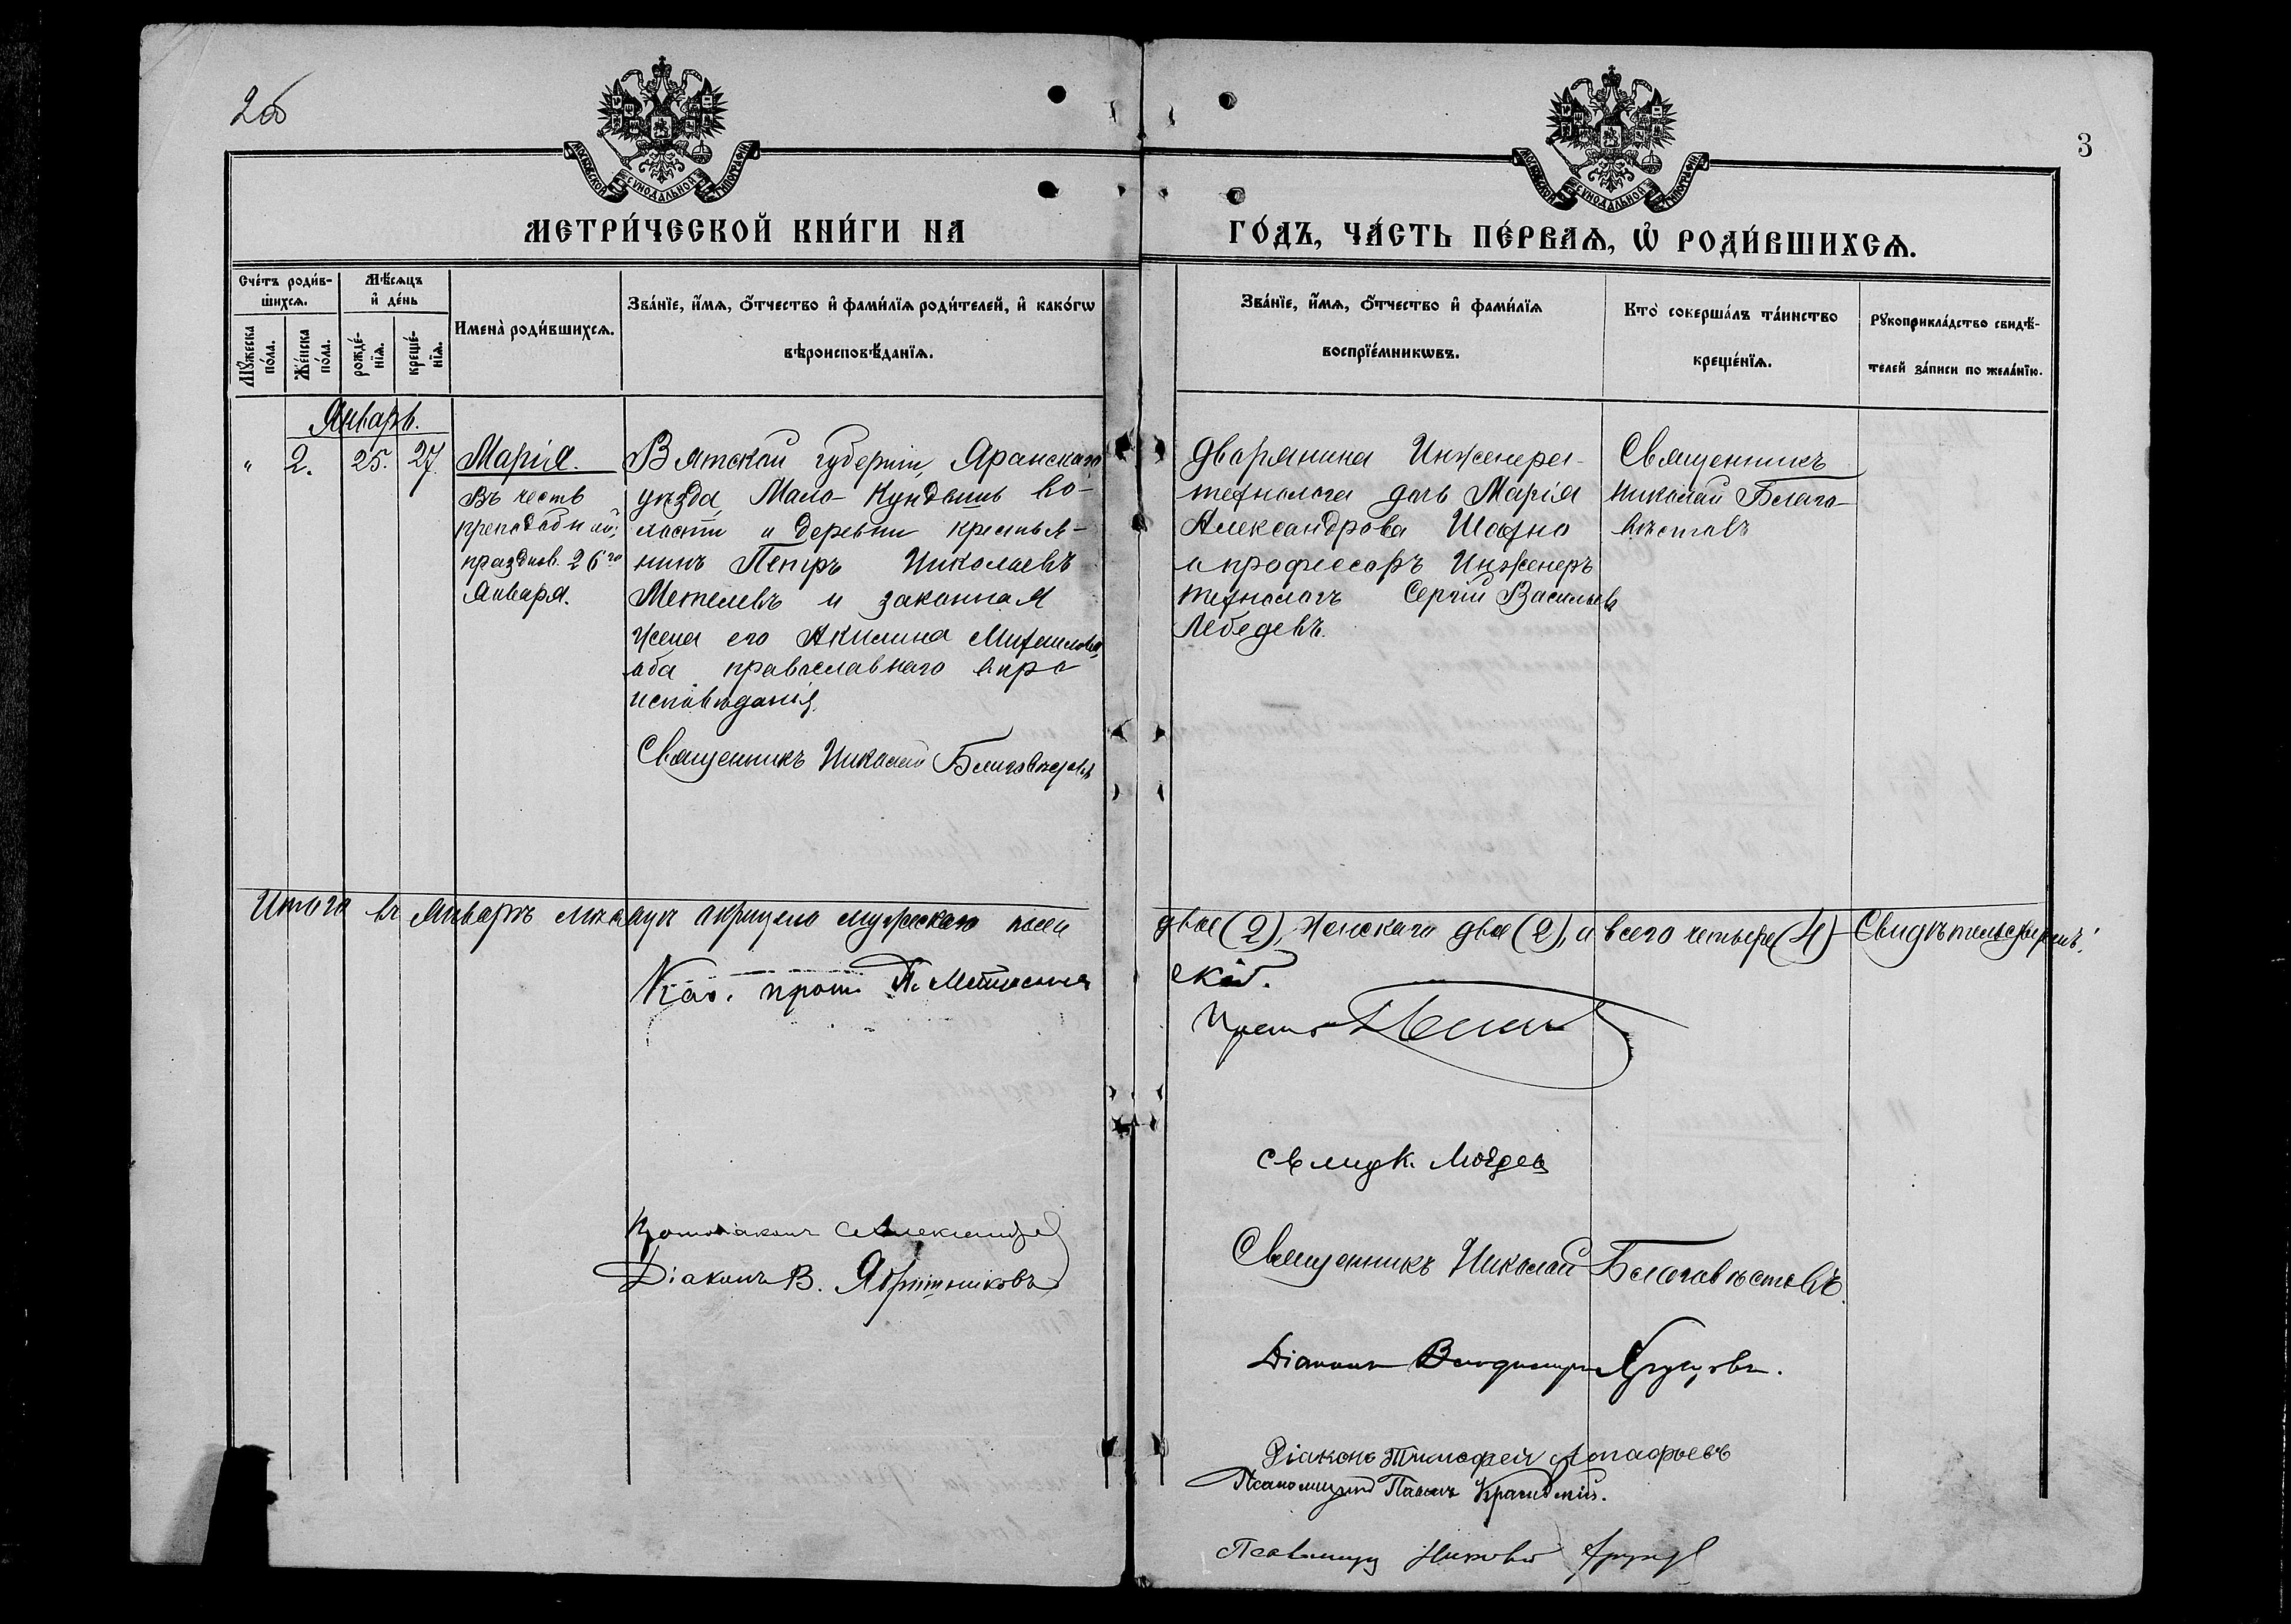 2об
3
МОСКОВСКОЙ СѴНОДАЛЬНОЙ ТИПОГРАФІИ
МОСКОВСКОЙ СѴНОДАЛЬНОЙ ТИПОГРАФІИ
МЕТРИ́ЧЕСКОЙ КНИ́ГИ НА
ГО́ДЪ, ЧА́СТЬ ПЕ́РВАѦ, Ѡ҆ РОДИ́ВШИХСѦ.
Сче́тъ роди́в-
шихсѧ.
Мꙋ́жеска по́ла.
Же́нска по́ла.
Мѣ́сѧцъ
и҆ де́нь
рожде́-
нїѧ.
креще́-
нїѧ.
Имена̀ роди́вшихсѧ.
Зва́нїе, и҆́мѧ, ѻ҆́тчество и҆ фами́лїѧ роди́телей, и҆ како́гѡ
вѣроисповѣ́данїѧ.
Зва́нїе, и҆́мѧ, ѻ҆́тчество и҆ фами́лїѧ
воспрїе́мникѡвъ.
Кто̀ соверша́лъ та́инство
креще́нїѧ.
Рꙋкоприкла́дство свидѣ́-
телей за́писи по жела́нїю.
Январь.
" 2. 25. 27.
Марія.
Въ честь
преподобной,
празднов. 26го
Января.
Вятской губерніи, Яранскаго
уѣзда, Мало-Кундышь во-
лости и деревни крестья-
нинъ Петръ Николаевъ
Метелевъ и законная
жена его Акилина Михаилова,
оба православнаго вѣро
исповѣданія.
Священникъ Николай Благовѣстовъ
дворянина Инженера-
технолога дочь Марія
Александрова Шахно
и профессоръ Инженеръ
технологъ Сергій Васильевъ
Лебедевъ.
Священникъ
Николай Благо-
вѣстовъ
Итого въ Январѣ мѣсяцѣ окрещено мужескаго пола
двое (2), женскаго двое (2), а всего четыре (4) Свидѣтельствуемъ:
Каѳ. прот. П.
Свящ. К.
Протодіаконъ Александръ
Діаконъ В. Ябритниковъ
Священникъ Николай Благовѣстовъ.
Діаконъ Владимиръ
Діаконъ Тимофей Агафоевъ
Псаломщикъ Павелъ
Псаломщ